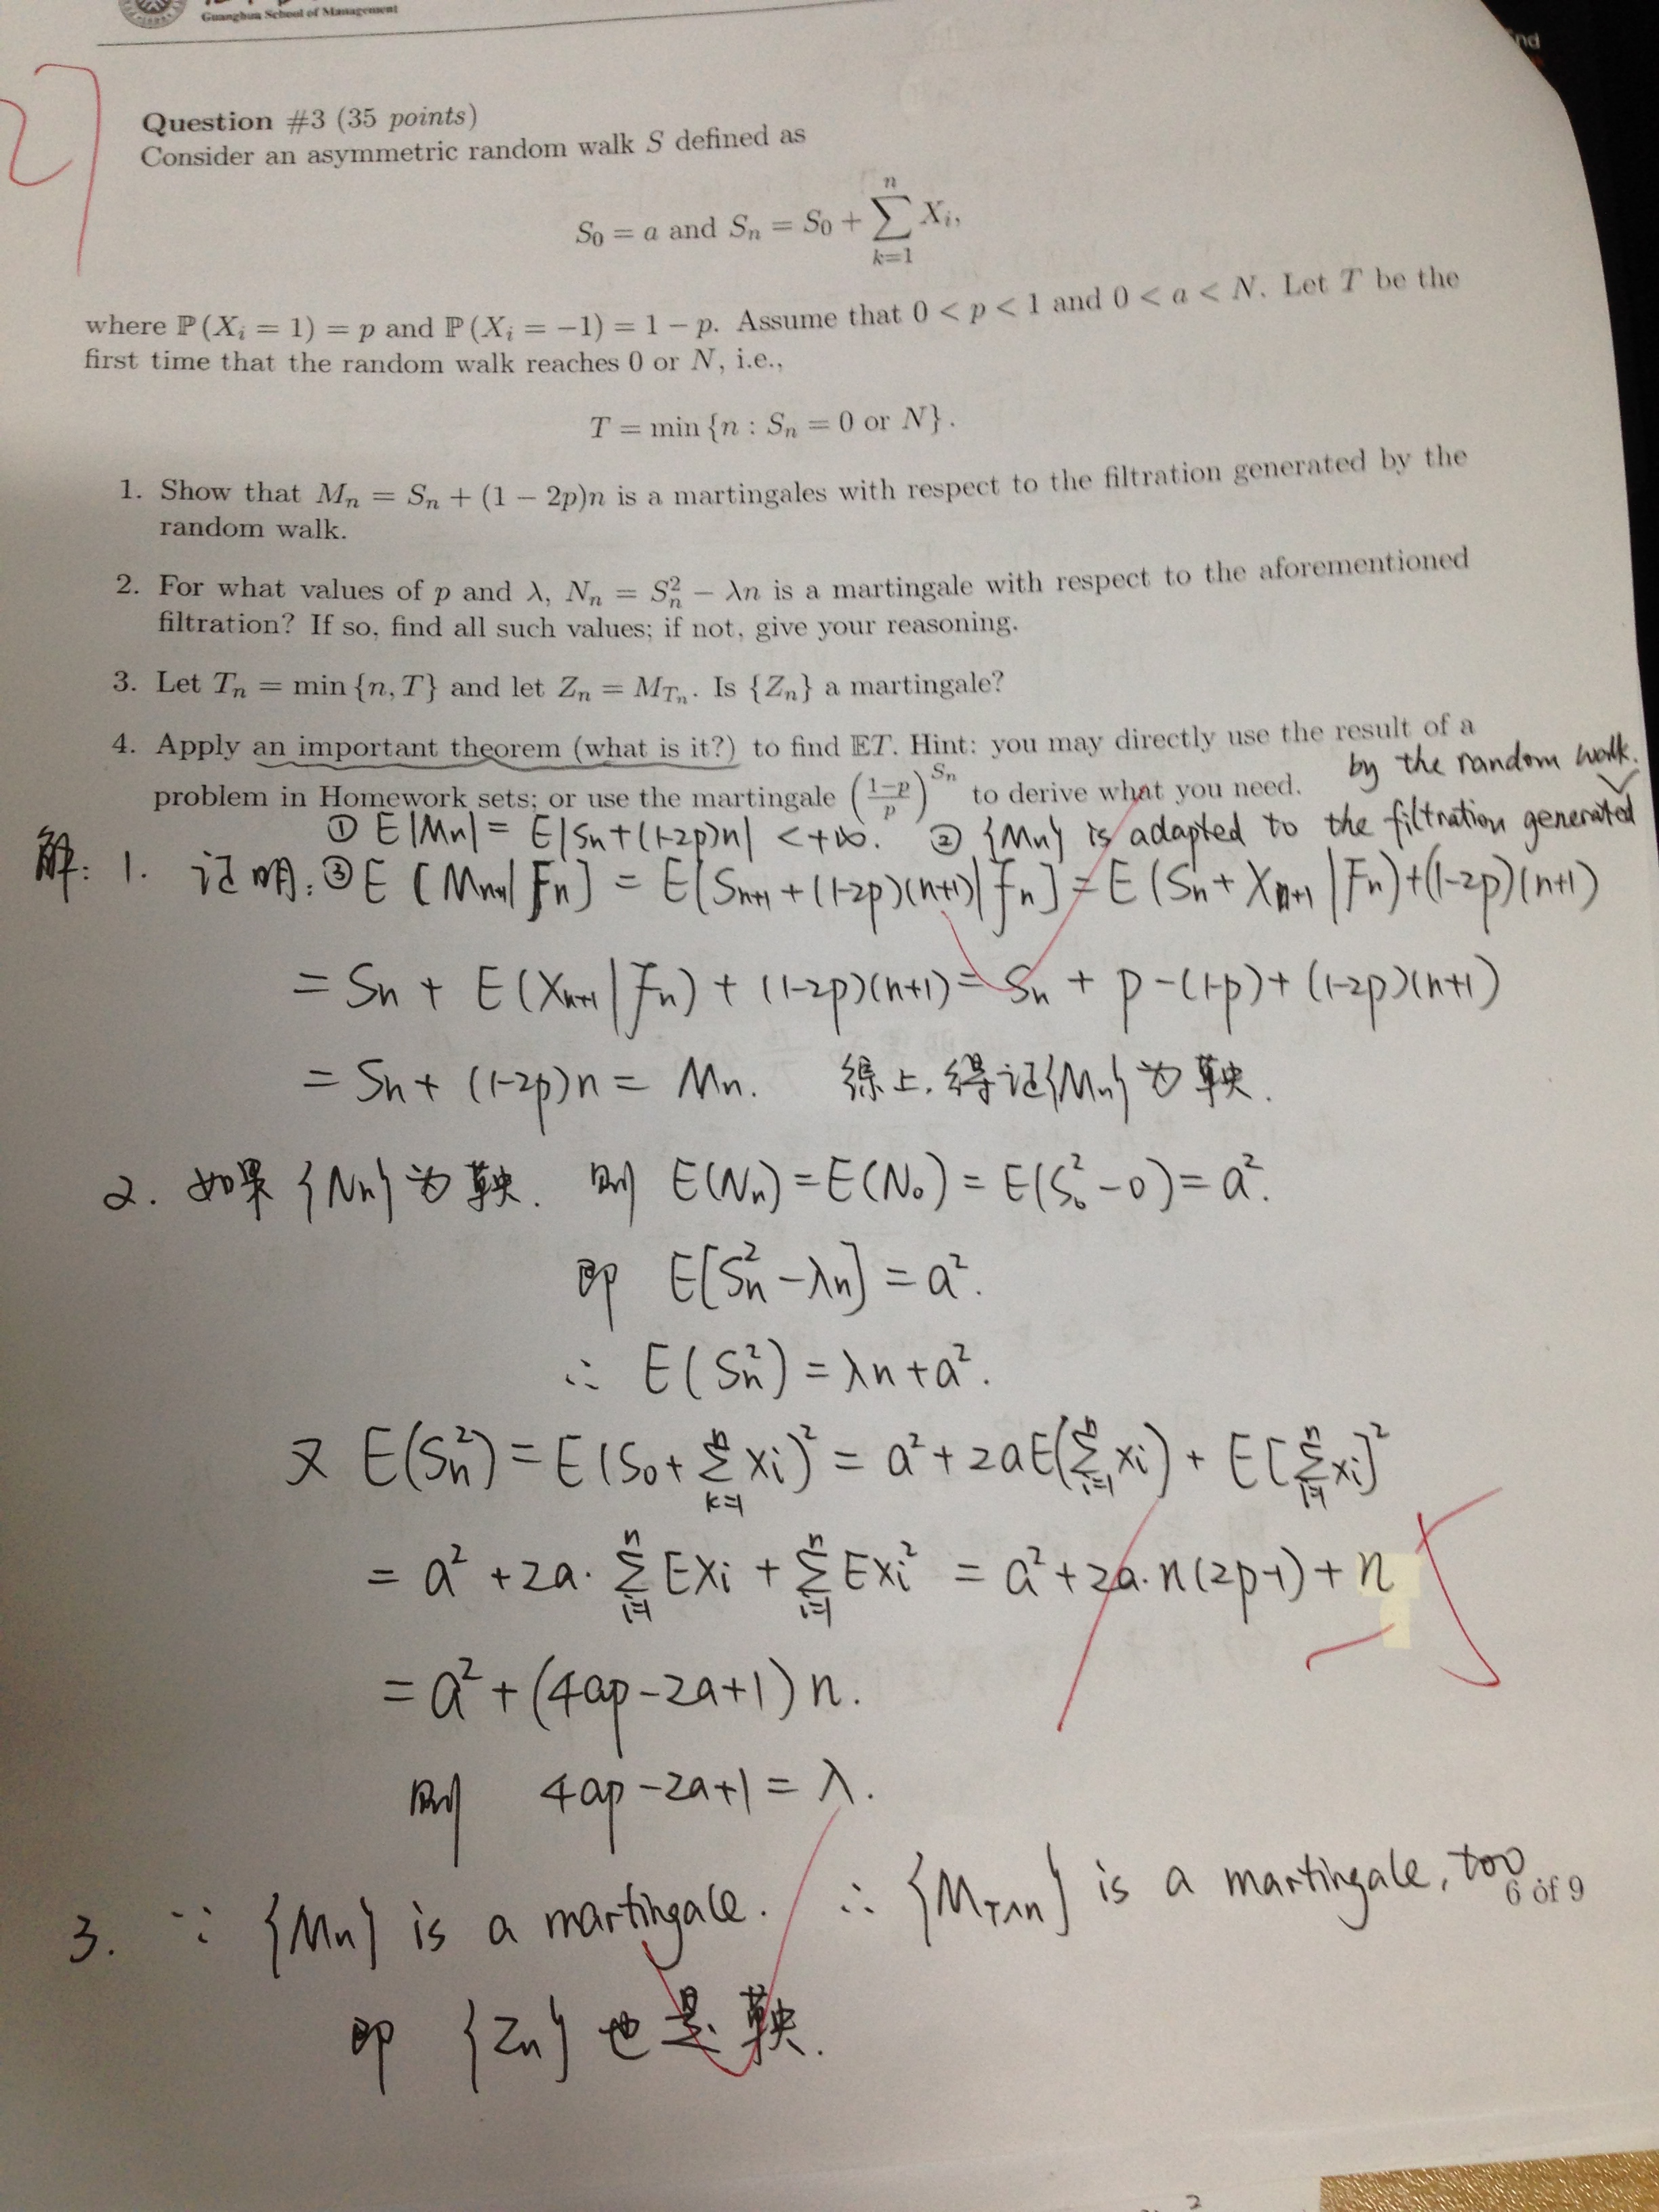 Guanghua School of Management
Question #3 (35 points)
Consider an asymmetric random walk S defined as
S₀ = a and Sₙ = S₀ + ∑_{k=1}^{n} Xᵢ,
where ℙ(Xᵢ = 1) = p and ℙ(Xᵢ = −1) = 1 − p. Assume that 0 < p < 1 and 0 < a < N. Let T be the
first time that the random walk reaches 0 or N, i.e.,
T = min {n : Sₙ = 0 or N}.
1. Show that Mₙ = Sₙ + (1 − 2p)n is a martingales with respect to the filtration generated by the
random walk.
2. For what values of p and λ, Nₙ = Sₙ² − λn is a martingale with respect to the aforementioned
filtration? If so, find all such values; if not, give your reasoning.
3. Let Tₙ = min {n, T} and let Zₙ = M_{Tₙ}. Is {Zₙ} a martingale?
4. Apply an important theorem (what is it?) to find 𝔼T. Hint: you may directly use the result of a
problem in Homework sets; or use the martingale ((1−p)/p)^{Sₙ} to derive what you need.
by the random walk.
① E|Mn| = E|Sn+(1-2p)n| < +∞. ② {Mn} is adapted to the filtration generated
解: 1. 证明: ③ E[Mn+1|Fn] = E[Sn+1 + (1-2p)(n+1)|Fn] = E(Sn + Xn+1|Fn) + (1-2p)(n+1)
= Sn + E(Xn+1|Fn) + (1-2p)(n+1) = Sn + p-(1-p) + (1-2p)(n+1)
= Sn + (1-2p)n = Mn. 综上, 得证{Mn}为鞅.
2. 如果{Nn}为鞅. 则 E(Nn) = E(N₀) = E(S₀²-0) = a².
即 E[Sn²-λn] = a².
∴ E(Sn²) = λn+a².
又 E(Sn²) = E(S₀+∑_{k=1}^{n} Xi)² = a² + 2aE(∑_{i=1}^{n} Xi) + E[∑_{i=1}^{n} Xi]²
= a² + 2a·∑_{i=1}^{n} EXi + ∑_{i=1}^{n} EXi² = a² + 2a·n(2p-1) + n
= a² + (4ap-2a+1)n.
则 4ap-2a+1 = λ.
3. ∵ {Mn} is a martingale. ∴ {M_{T∧n}} is a martingale, too
6 of 9
即 {Zn} 也是鞅.